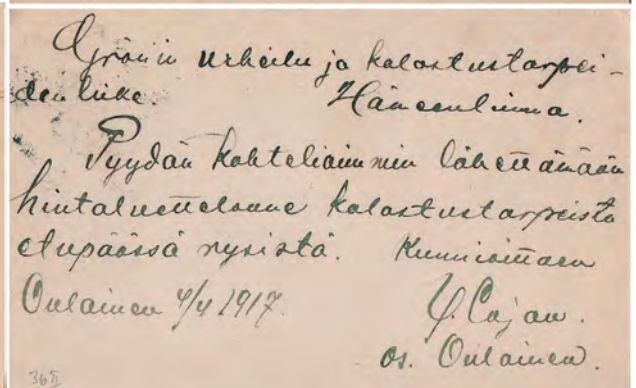 Grönin urheilu ja kalastustarpei-
den liike. Hämeenlinna.
Pyydän kohteliaimmin lähettämään
hintaluettelonne kalastustarpeista
etupäässä rysistä. Kunnioittaen
Oulainen 4/4 1917. Y. Cajan.
os. Oulainen.
36 II